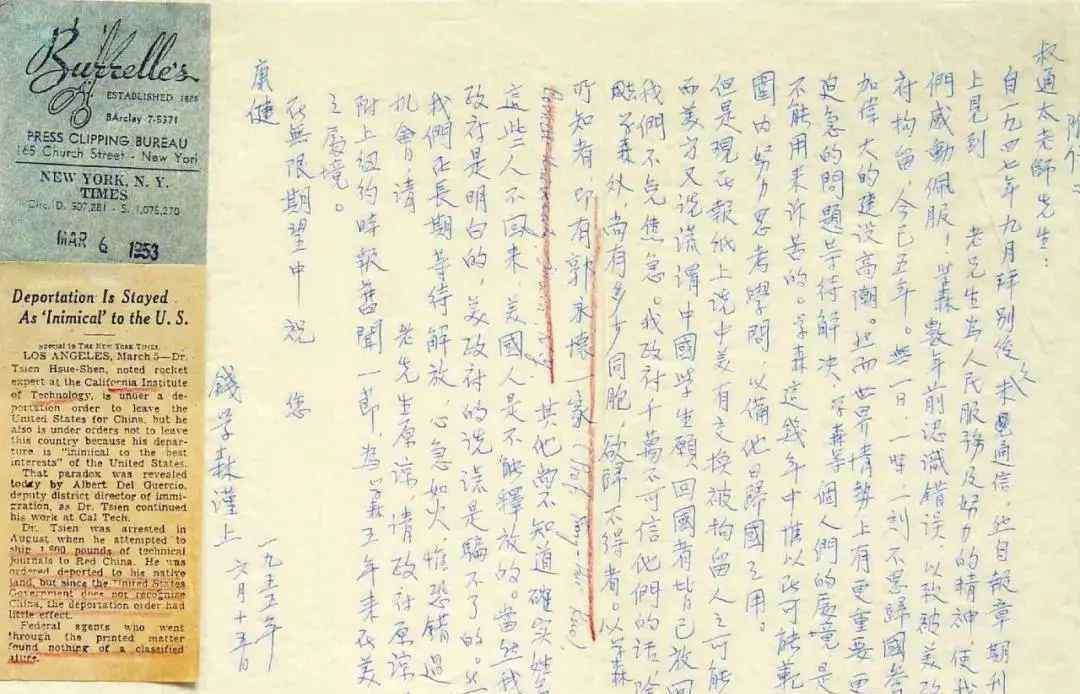 Burrelle's
ESTABLISHED 1888
BArclay 7-5371
PRESS CLIPPING BUREAU
165 Church Street - New York
NEW YORK, N. Y.
TIMES
Circ. D. 507,281 - S. 1,076,270
MAR 6 1953
Deportation Is Stayed
As 'Inimical' to the U. S.
Special to THE NEW YORK TIMES.
LOS ANGELES, March 5—Dr.
Tsien Hsue-Shen, noted rocket
expert at the California Institute
of Technology, is under a de-
portation order to leave the
United States for China, but he
also is under orders not to leave
this country because his depar-
ture is "inimical to the best
interests" of the United States.
That paradox was revealed
today by Albert Del Guercio,
deputy district director of immi-
gration, as Dr. Tsien continued
his work at Cal Tech.
Dr. Tsien was arrested in
August when he attempted to
ship 1,800 pounds of technical
journals to Red China. He was
ordered deported to his native
land, but since the United States
Government does not recognize
China, the deportation order had
little effect.
Federal agents who went
through the printed matter
found nothing of a classified
叔通太老師先生：
自一九四七年九月拜別後久未通信，然自報章期刊
上見到 老先生為人民服務及努力的精神使我
們感動佩服！學森數年前認識錯誤，以致被美政
府拘留，今已五年。無一日、一時、一刻不思歸國參
加偉大的建設高潮。然而世界情勢上有更重要更
迫急的問題等待解決，學森等個人們的處境是
不能用來訴苦的。學森這幾年中惟以此可能範
圍內努力思考學問，以備他日歸國之用。
但是現在報紙上說中美有交換被拘留人之可能
而美方又說謊謂中國學生願回國者皆已放回
我們不免焦急。我政府千萬不可信他們的話，除
學森外，尚有多少同胞，欲歸不得者。以學森
所知者，即有郭永懷一家
其他尚不知道確實姓
這些人不回来，美國人是不能釋放的。當然我
政府是明白的，美政府的說謊是騙不了的。
我們在長期等待解放，心急如火，惟恐錯過
机會，請 老先生原諒，請政府原諒
附上紐約時報舊聞一節，為學森五年来在美
之處境。
在無限期望中祝 您
康健
錢学森謹上
一九五五年
六月十五日